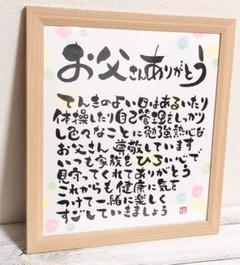 お父さんありがとう
てんきのよい日はあるいたり
体操したり自己管理もしっかり
し色々なことに勉強熱心な
お父さん 尊敬しています
いつも家族をひろい心で
見守ってくれてありがとう
これからも健康に気を
つけて一緒に楽しく
すごしていきましょう